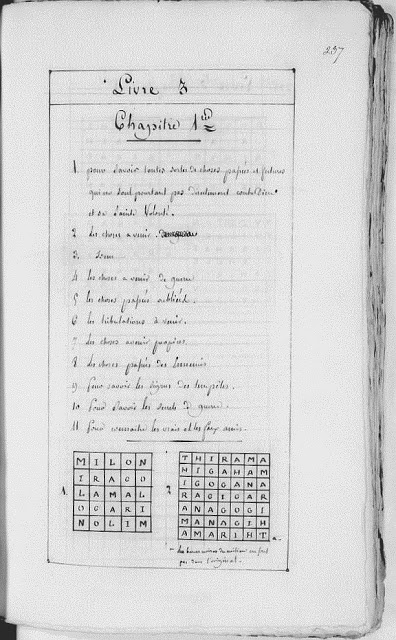 237
Livre 3
Chapitre 1er
1. pour savoir toutes sortes de choses passées et futures
qui ne sont pourtant pas directement contre Dieu
et sa Sainte Volonté.
2 les choses a venir.
3.
4 les choses a venir de guerre
5 les choses passées oubliées.
6 les tribulations a venir.
7 les choses avenir propices.
8 les choses passées des Ennemis
9. pour savoir les signes des tempêtes.
10. pour savoir les secrets de guerre.
11 pour connaitre les vrais et les faux amis.
1.
MILON
IRAGO
LAMAL
OGARI
NOLIM
2
THIRAMA
HIGAHAM
IGOGANA
RAGIGAR
ANAGOGI
MANAGIH
AMARIHT
a
pas dans l'original.